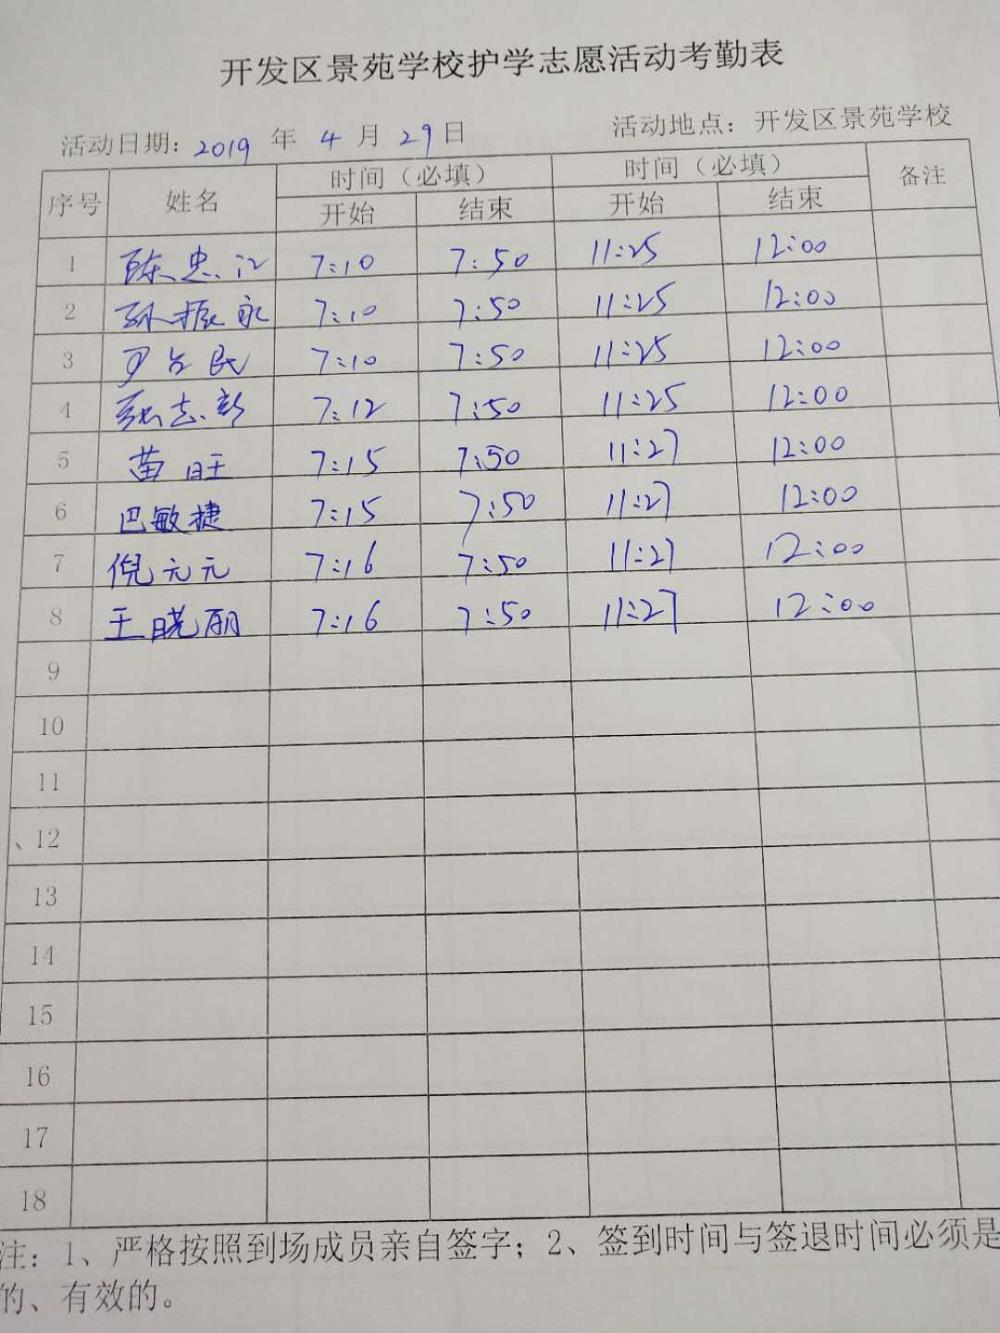 开发区景苑学校护学志愿活动考勤表
活动日期: 2019 年 4 月 29 日 活动地点: 开发区景苑学校
序号 姓名 时间（必填） 时间（必填） 备注
开始 结束 开始 结束
1 陈忠江 7:10 7:50 11:25 12:00
2 孙振永 7:10 7:50 11:25 12:00
3 尹占民 7:10 7:50 11:25 12:00
4 张志新 7:12 7:50 11:25 12:00
5 苗旺 7:15 7:50 11:27 12:00
6 巴敏捷 7:15 7:50 11:27 12:00
7 倪元元 7:16 7:50 11:27 12:00
8 王晓丽 7:16 7:50 11:27 12:00
9
10
11
、12
13
14
15
16
17
18
注: 1、严格按照到场成员亲自签字; 2、签到时间与签退时间必须是
的、有效的。